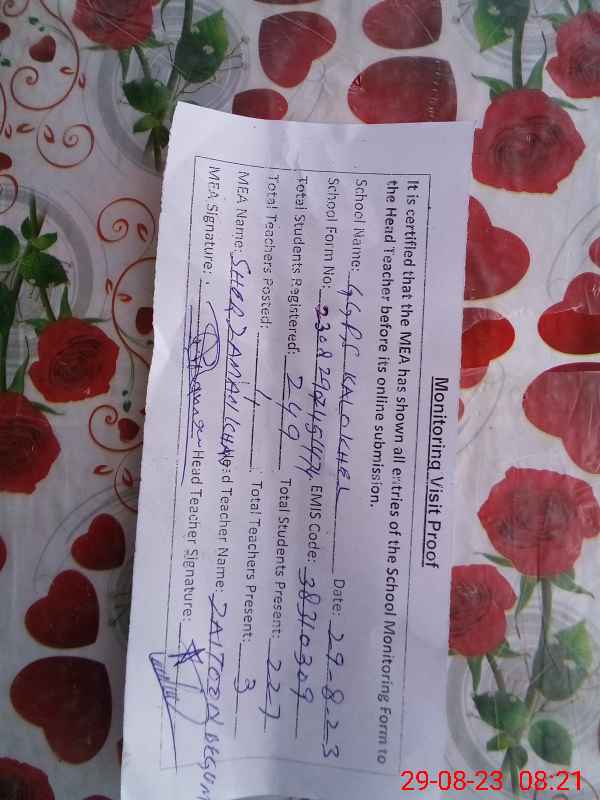 Monitoring Visit Proof
It is certified that the MEA has shown all entries of the School Monitoring Form to
the Head Teacher before its online submission.
School Name: GGPS KALA KHEL Date: 29-8-23
School Form No: EMIS Code: 38710309
Total Students Registered: 249 Total Students Present: 227
Total Teachers Posted: Total Teachers Present: 3
MEA Name: SHER ZAMAN KHAN Head Teacher Name: ZAITOON BEGUM
MEA Signature: Head Teacher Signature:
29-08-23 08:21